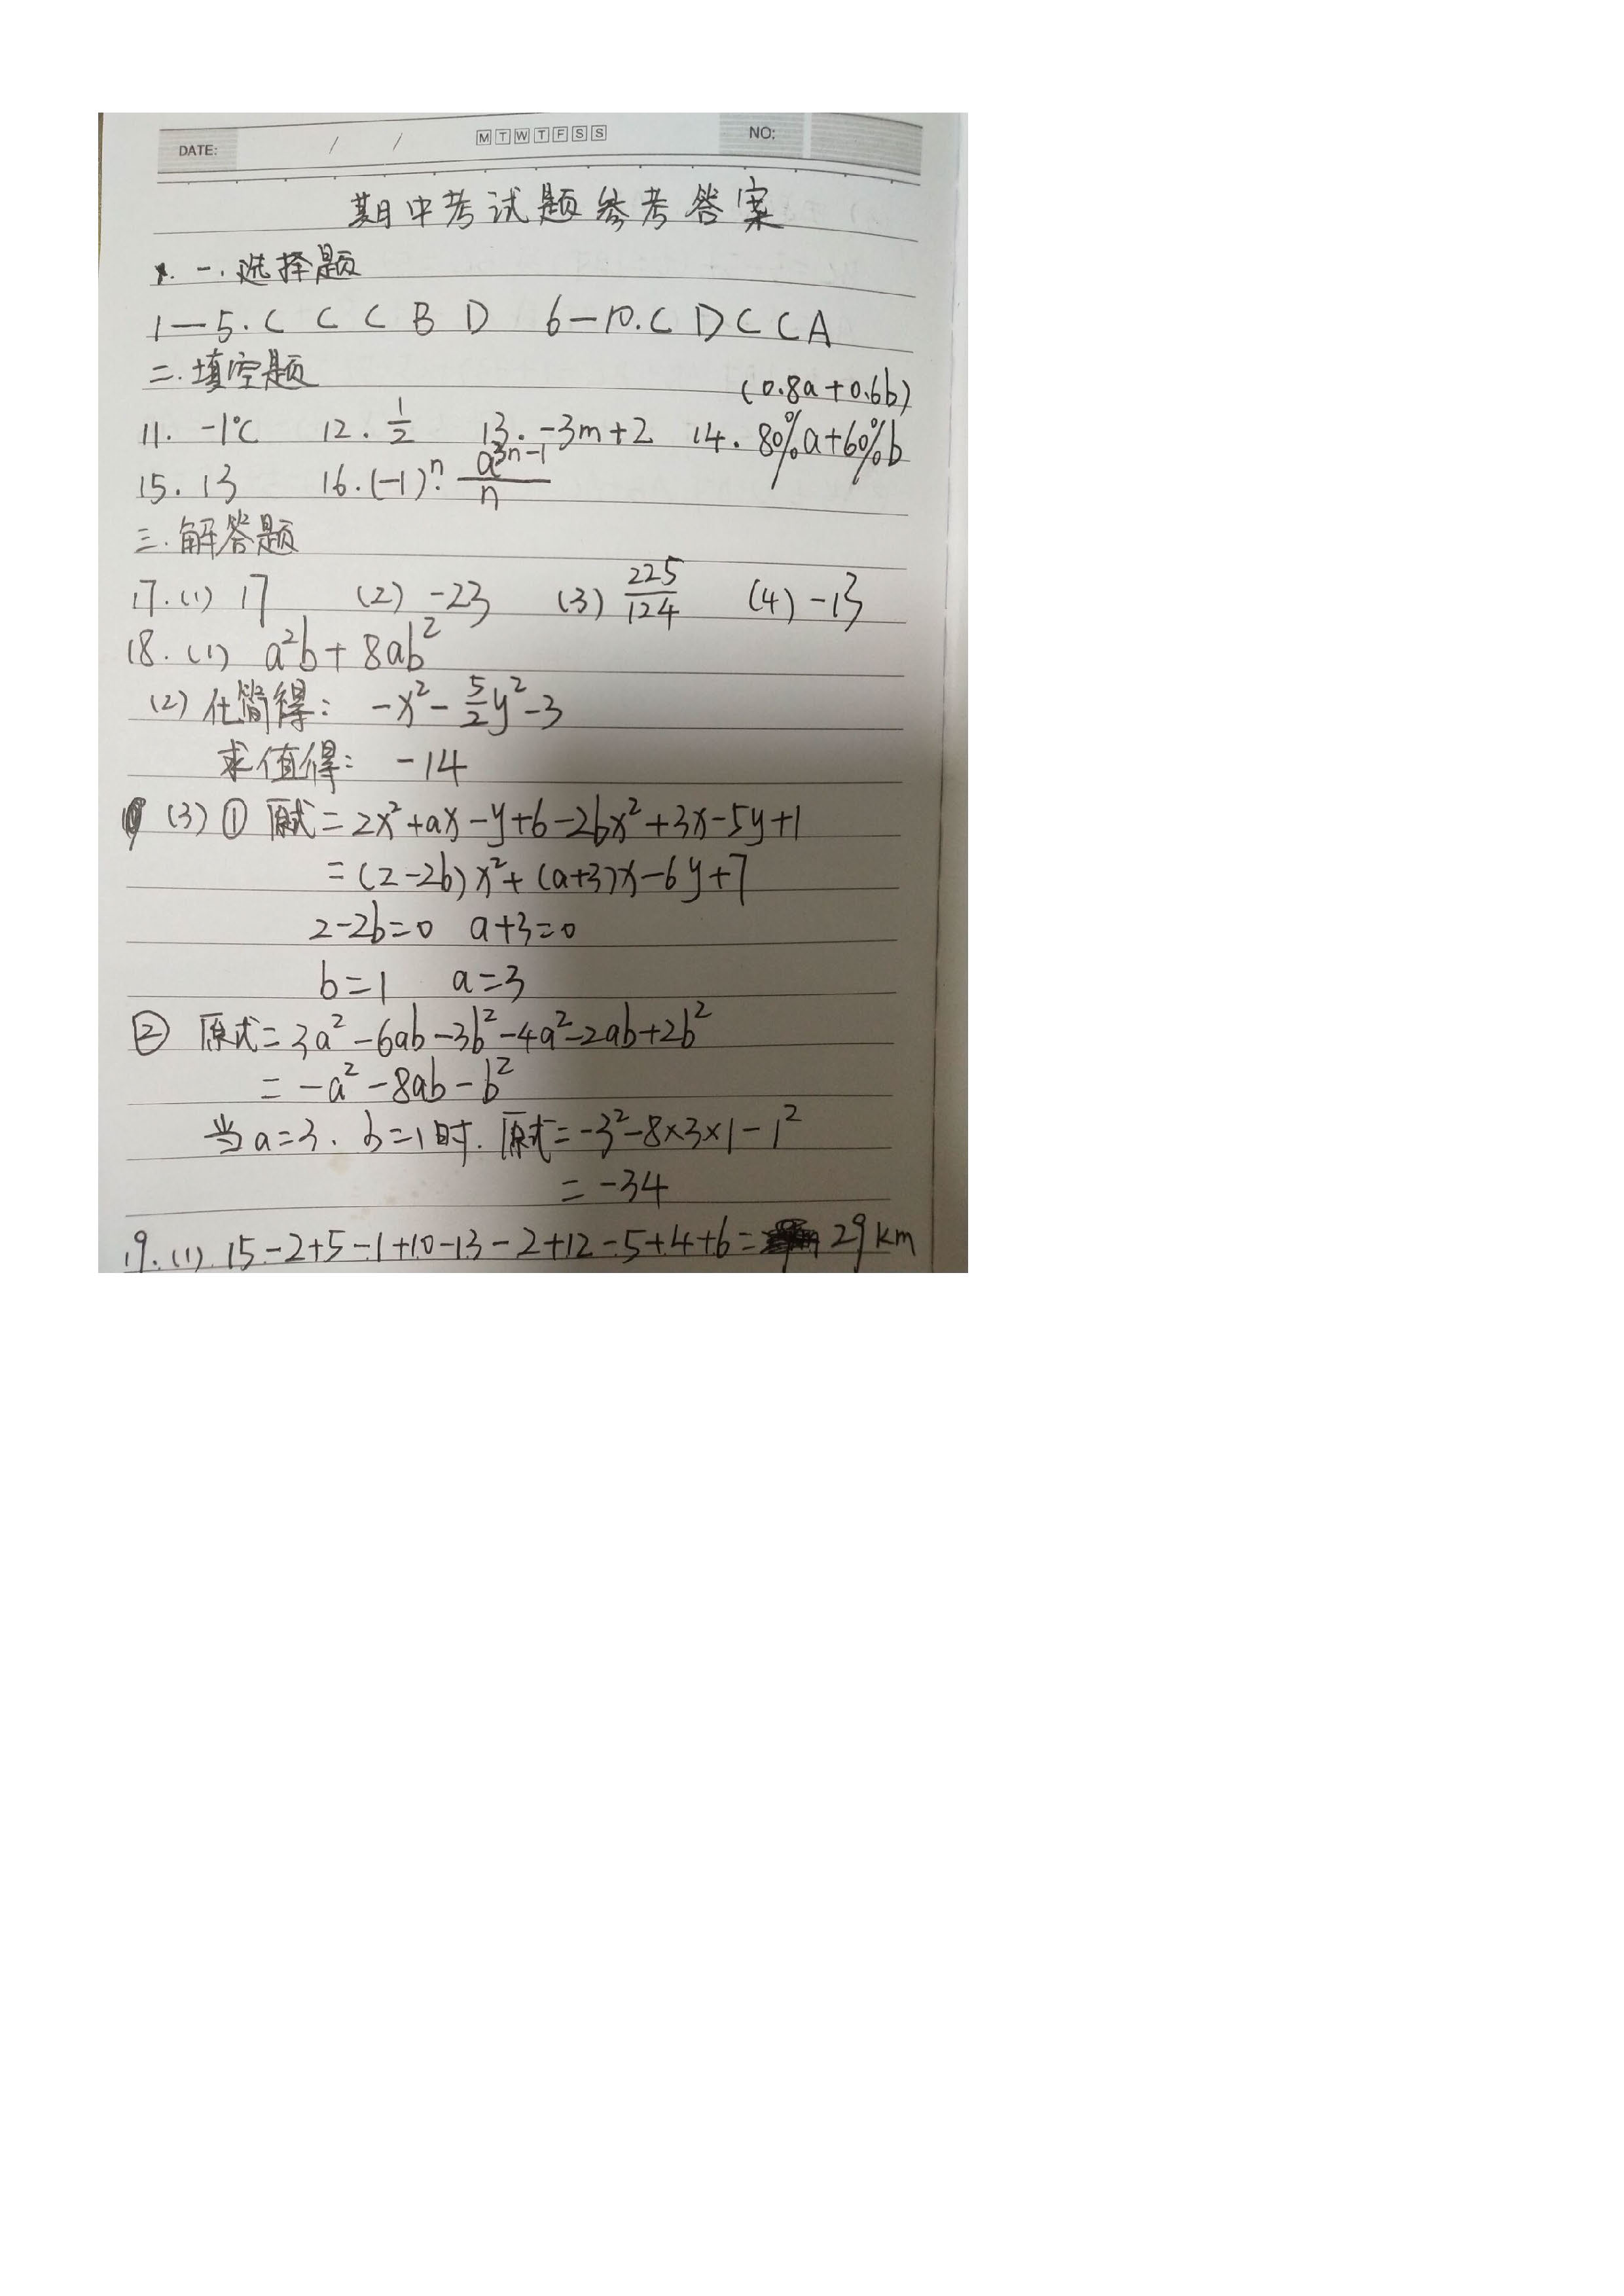 DATE: / / M T W T F S S NO:
期中考试题参考答案
一.选择题
1—5. C C C B D 6—10. C D C C A
二.填空题
(0.8a+0.6b)
11. -1℃ 12. 1/2 13. -3m+2 14. 80%a+60%b
15. 13 16. (-1)ⁿ· a³ⁿ⁻¹/n
三.解答题
17. (1) 17 (2) -23 (3) 225/124 (4) -13
18. (1) a²b+8ab²
(2) 化简得: -x²-5/2y²-3
求值得: -14
(3) ① 原式=2x²+ax-y+6-2bx²+3x-5y+1
=(2-2b)x²+(a+3)x-6y+7
2-2b=0 a+3=0
b=1 a=3
② 原式=3a²-6ab-3b²-4a²-2ab+2b²
=-a²-8ab-b²
当a=3、b=1时.原式=-3²-8×3×1-1²
=-34
19. (1) 15-2+5-1+10-13-2+12-5+4+6= 29km